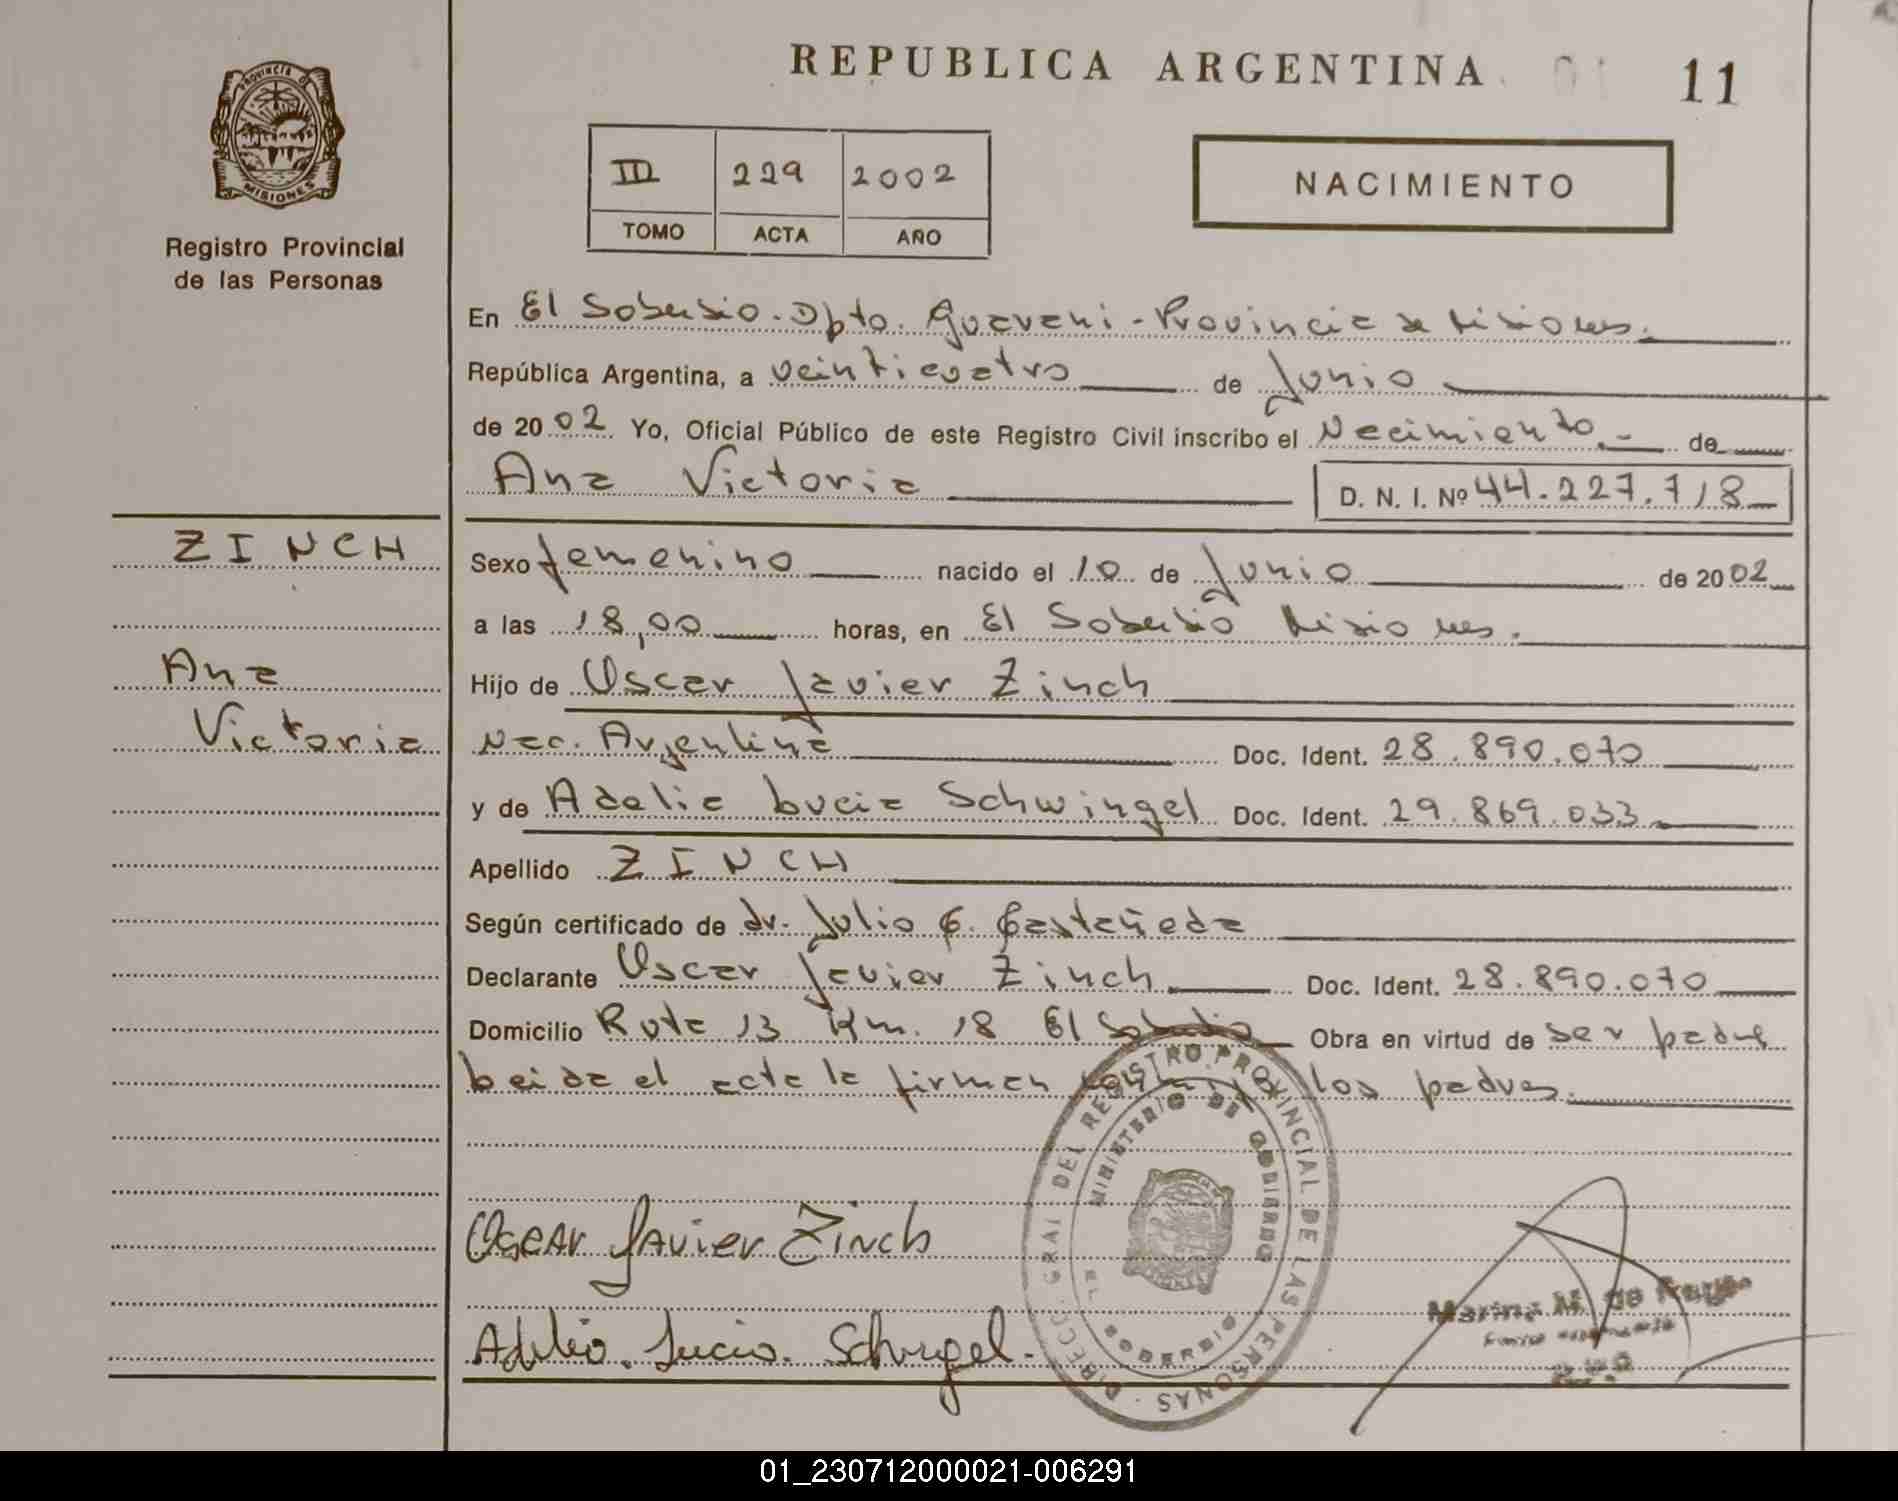 REPUBLICA ARGENTINA
11
PROVINCIA DE
MISIONES
Registro Provincial
de las Personas
III 229 2002
TOMO ACTA AÑO
NACIMIENTO
En El Soberbio. Dpto. Guarani - Provincia de Misiones.
República Argentina, a veinticuatro de Junio
de 2002 Yo, Oficial Público de este Registro Civil inscribo el Nacimiento.- de
Ana Victoria D. N. I. Nº 44.227.718
ZINCH
Ana
Victoria
Sexo femenino nacido el 10 de Junio de 2002
a las 18,00 horas, en El Soberbio Misiones.
Hijo de Oscar Javier Zinch
Nac. Argentina Doc. Ident. 28.890.070
y de Adelia Lucia Schwingel Doc. Ident. 29.869.033
Apellido ZINCH
Según certificado de dr. Julio C. Castañeda
Declarante Oscar Javier Zinch Doc. Ident. 28.890.070
Domicilio Ruta 13 Km. 18 El Soberbio Obra en virtud de ser padre
leida el acta la firman los padres.
DIRECC. GRAL DEL REGISTRO PROVINCIAL DE LAS PERSONAS
MINISTERIO DE GOBIERNO
EL SOBERBIO
Oscar Javier Zinch
Adelia. Lucia. Schwingel.
01_230712000021-006291